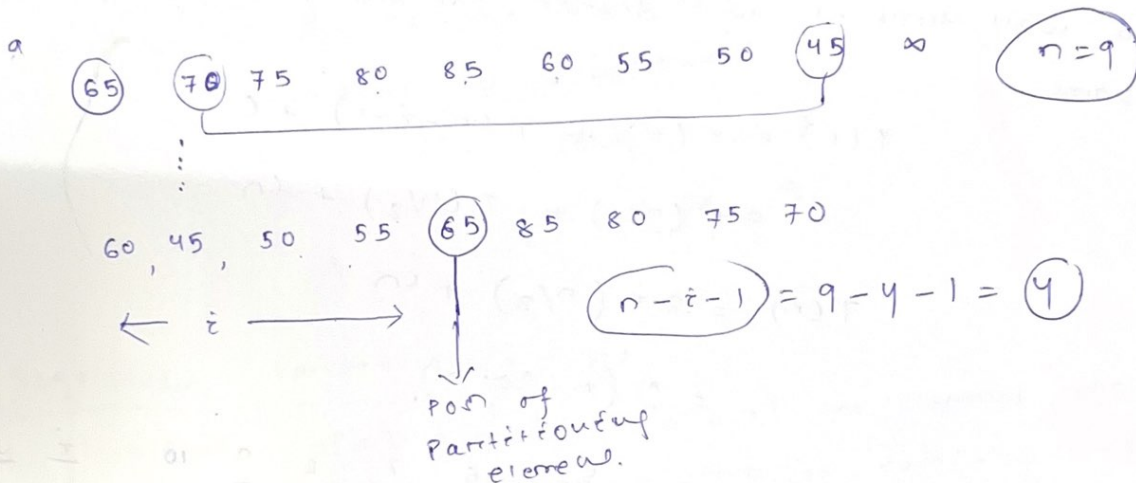 a
65 70 75 80 85 60 55 50 45 ∞ n=9
⋮
60, 45, 50 55 65 85 80 75 70
← i → n-i-1 = 9-4-1 = 4
Posn of
Partitioning
element.